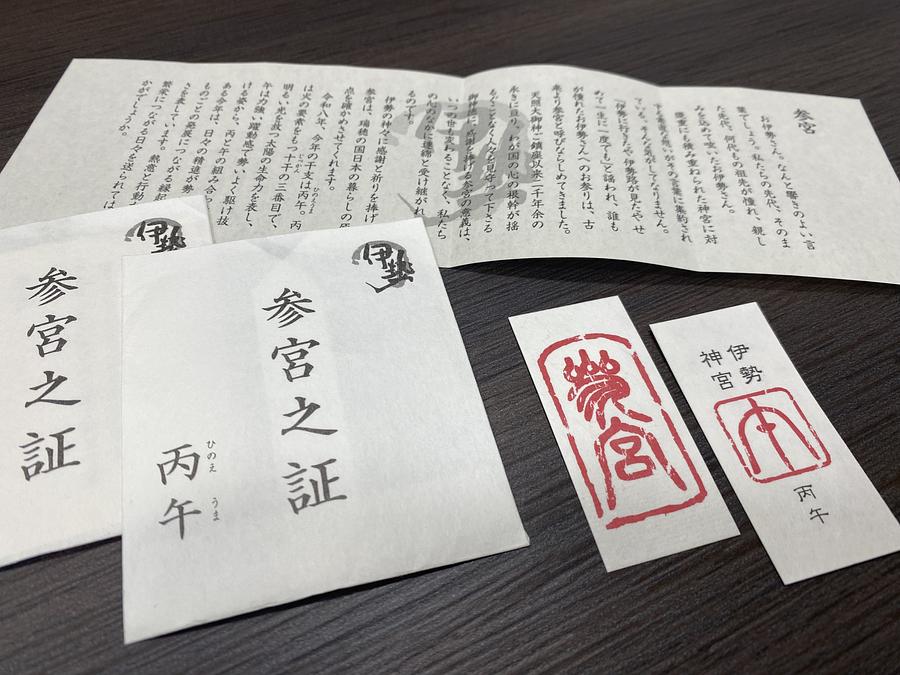 参宮
お伊勢さん。なんと響きのよい言
葉でしょう。私たちの先代、そのま
た先代、何代もの祖先が憧れ、親し
みを込めて呼いたお伊勢さん。
にも積み重ねられた神宮に対
する素直な想いがその言葉に集約され
ている、そんな気がしてなりません。
「伊勢に行きたや伊勢路が見たや、せ
めて一生に一度でも」と謡われ、誰も
が憧れたお伊勢さんへのお参りは、古
来より参宮と呼びならしめてきました。
天照大御神ご鎮座以来二千年余の
永きに亘り、わが国の心の根幹が揺
るぐことなく人々を見守って下さる
御神徳に感謝を捧げる参宮の意義は、
いつの世も変わることなく、私たち
の心のなかに連綿と受け継がれ
るものです。
伊勢の神々に感謝と祈りを捧げ
参宮は、瑞穂の国日本の暮らしの
点を確かめさせてくれます。
令和八年、今年の干支は丙午。丙
じっかん
ひのえうま
は火の要素をもつ十干の三番目で、
明るい光を放つ太陽の生命力を表し、
午は力強い躍動感で勢いよく駆け抜
ける姿から、丙と午の組み合わ
ある今年は、日々の精進が勢
ものごとの発展につながる縁起
さを表しています。熱意と行動
繁栄につながる日々を送られては
かがでしょうか。
伊勢
参宮之証
伊勢
参宮之証
丙午
ひのえ うま
参宮
伊勢
神宮
丙午